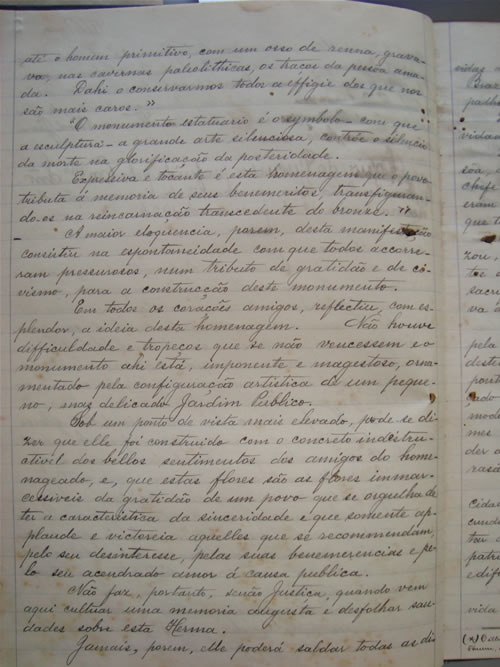 até o homem primitivo, com um osso de renna, grava-
va, nas cavernas paleolithicas, os traços da pessôa ama-
da. Dahi o conservarmos todos a effigie dos que nos
são mais caros."
"O monumento estatuario é o symbolo - com que
a esculptura - a grande arte silenciosa, contróe o silencio
da morte na glorificação da posteridade.
Expressiva e tocante é esta homenagem que o povo
tributa á memoria de seus benemeritos, transfiguran-
do-os na reincarnação transcedente do bronze."
A maior eloquencia, porem, desta manifestação
consistiu na espontaneidade com que todos accorre-
ram pressurosos, num tributo de gratidão e de ci-
vismo, para a construcção deste monumento.
Em todos os corações amigos, reflectiu, com es-
plendor, a ideia desta homenagem. Não houve
difficuldade e tropeços que se não vencessem e o
monumento ahi está, imponente e magestoso, orna-
mentado pela configuração artistica de um peque-
no, mas delicado Jardim Publico.
Sob um ponto de vista mais elevado, pode se di-
zer que elle foi construido com o concreto indistru-
ctivel dos bellos sentimentos dos amigos do home-
nageado, e, que estas flores são as flores immar-
cessiveis da gratidão de um povo que se orgulha de
ter a caracteristica da sinceridade e que somente ap-
plaude e victoreia aquelles que se recommendam,
pelo seu desinteresse, pelas suas benemerencias e pe-
lo seu acendrado amor á causa publica.
Não faz, portanto, senão Justiça, quando vem
aqui cultuar uma memoria augusta e desfolhar sau-
dades sobre esta Herma.
Jamais, porem, elle poderá saldar todas as di-
vidas
Braz